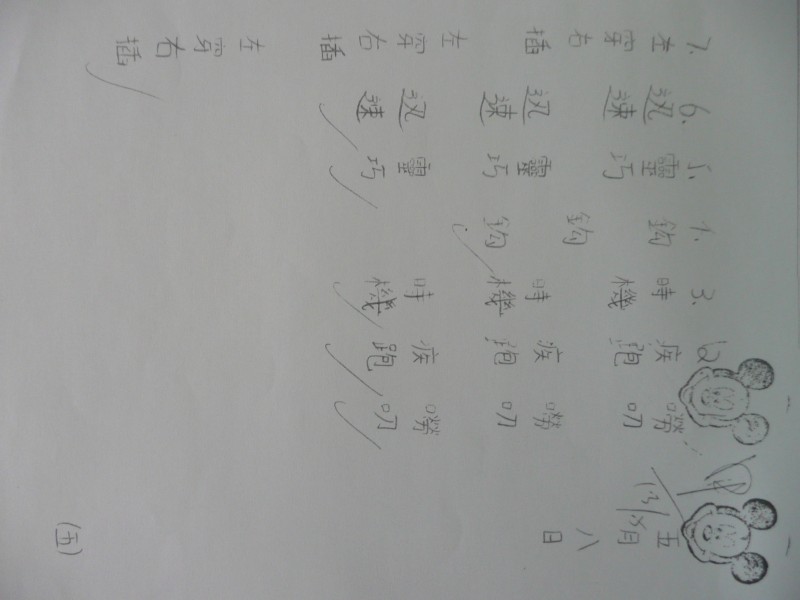 五月八日 (五)
13/5
嘮叨 嘮叨 嘮叨
2 疾跑 疾跑 疾跑
3. 時機 時機 時機
4. 鈎 鈎 鈎
5. 靈巧 靈巧 靈巧
6. 迅速 迅速 迅速
7. 左穿右插 左穿右插 左穿右插